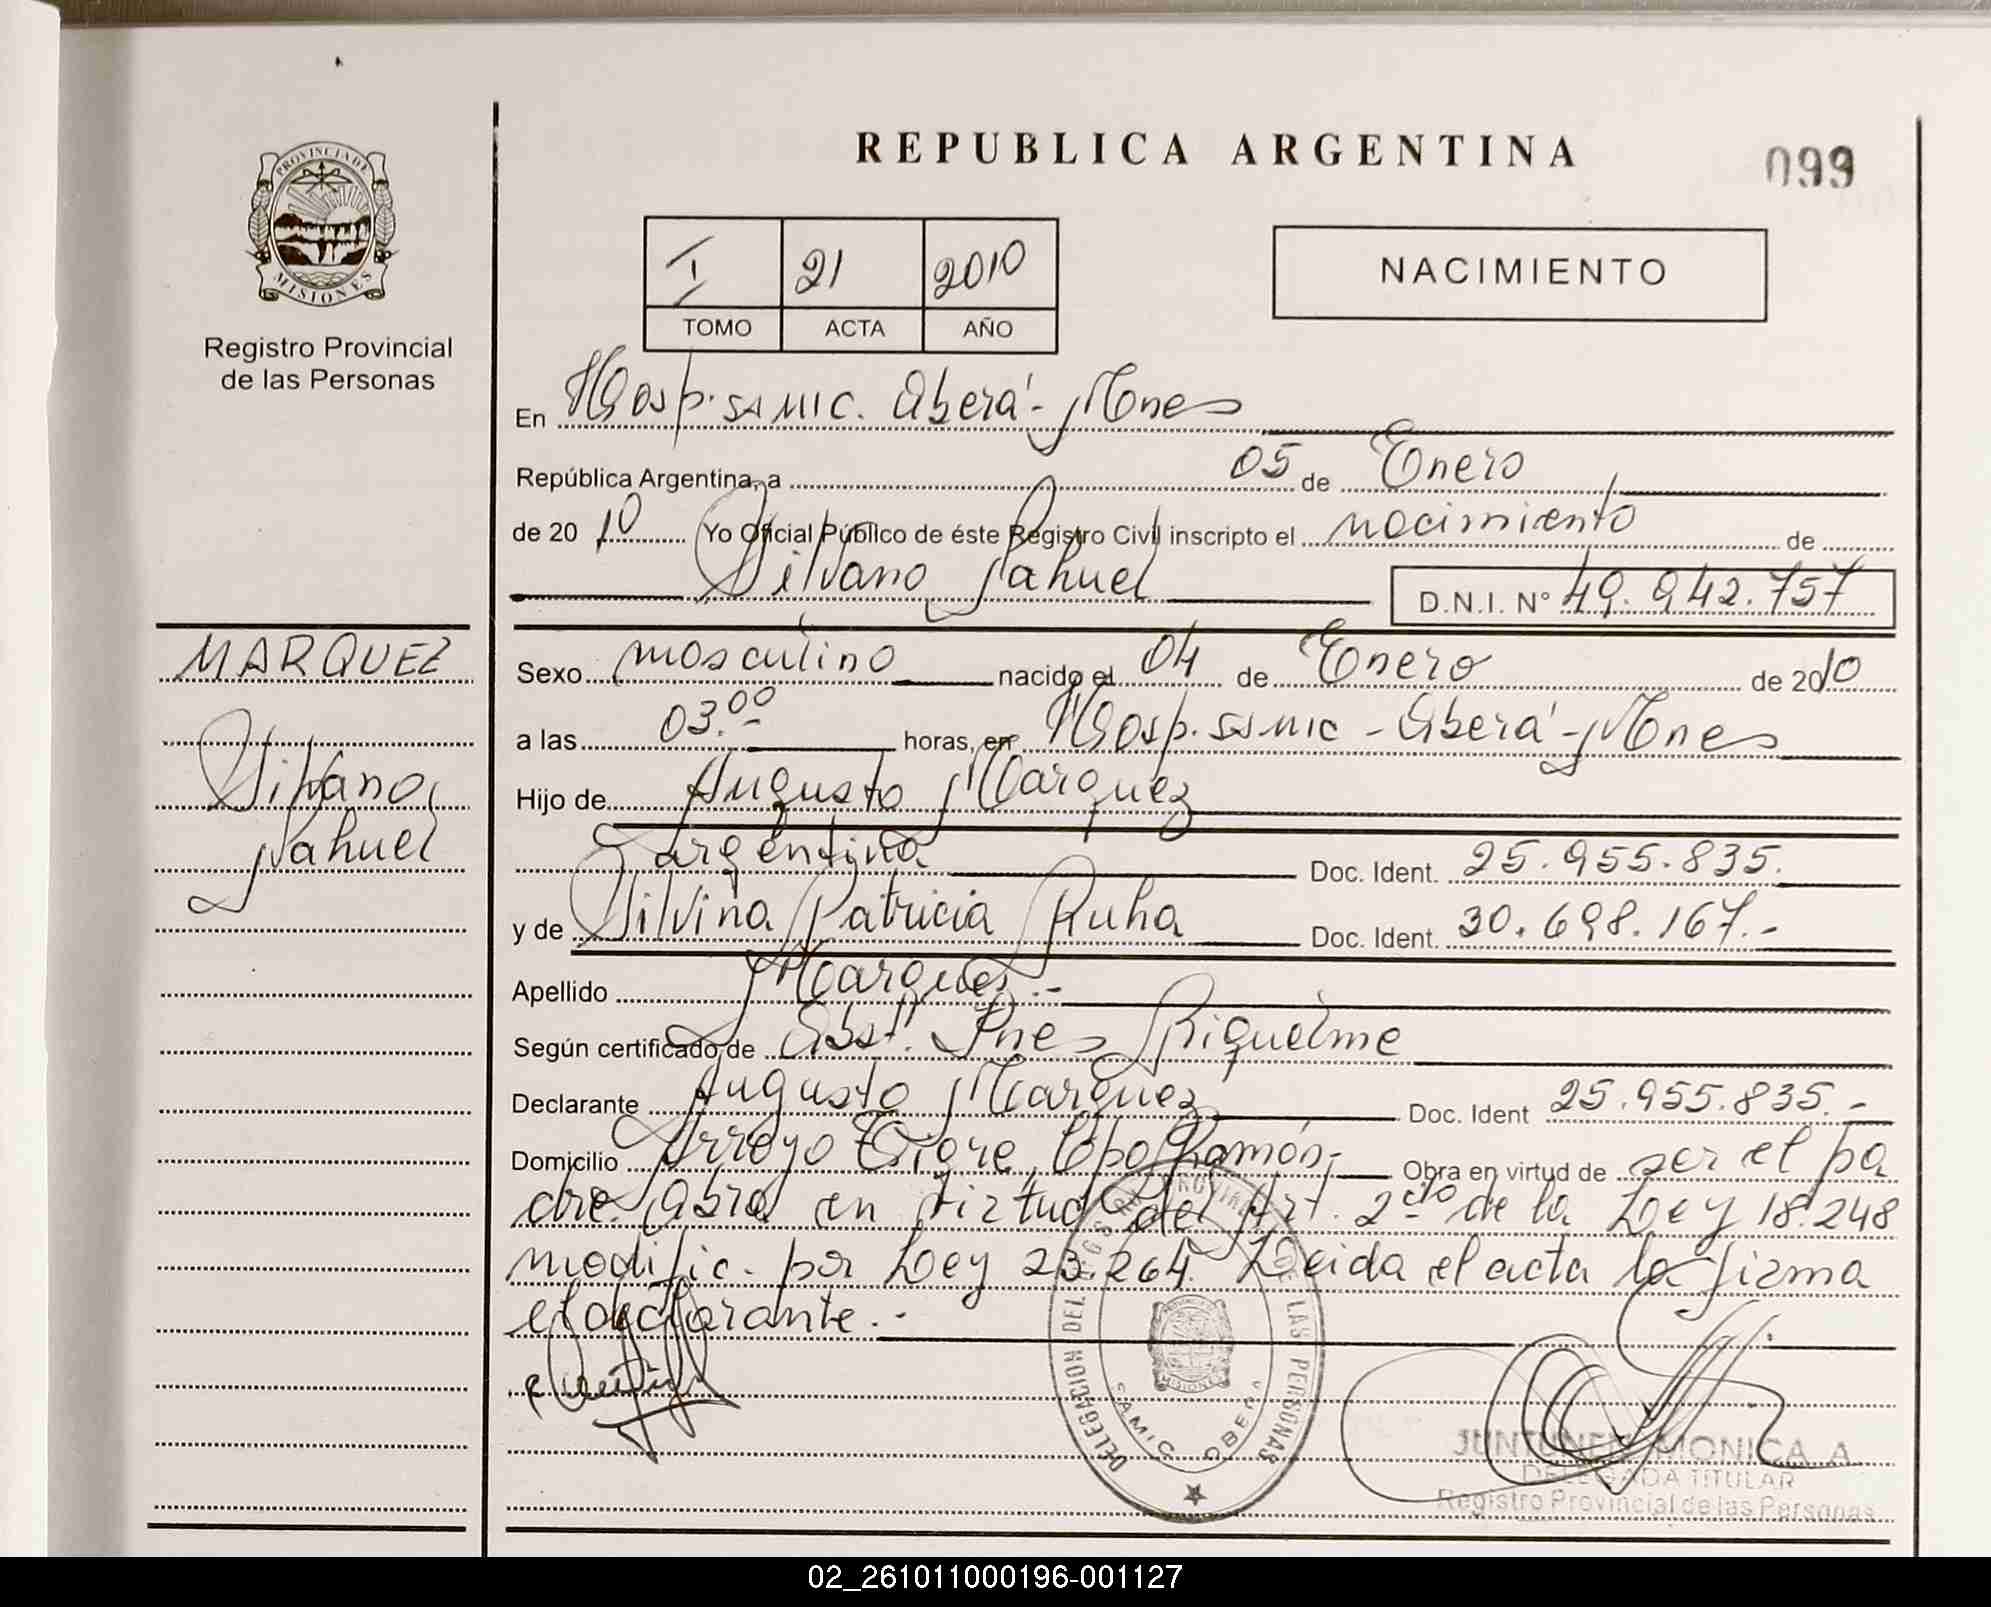 REPUBLICA ARGENTINA
099
PROVINCIA DE MISIONES
Registro Provincial
de las Personas
I 21 2010
TOMO ACTA AÑO
NACIMIENTO
En Hosp. SAMIC. Oberá - Mnes
República Argentina, a 05 de Enero
de 20 10 Yo Oficial Público de éste Registro Civil inscripto el nacimiento de
Silvano Nahuel D.N.I. N° 49.942.757
MARQUEZ
Silvano
Nahuel
Sexo masculino nacido el 04 de Enero de 2010
a las 03.00 horas, en Hosp. SAMIC - Oberá - Mnes
Hijo de Augusto Marquez
argentina Doc. Ident. 25.955.835.
y de Silvina Patricia Ruha Doc. Ident. 30.698.167.-
Apellido Marquez.-
Según certificado de Obst. Ines Riquelme
Declarante Augusto Marquez Doc. Ident 25.955.835.-
Domicilio Arroyo Tigre, Cpo Ramón,- Obra en virtud de ser el pa
dre. Obra en virtud del Art. 2do de la Ley 18.248
modific. por Ley 23.264. Leida el acta la firma
el declarante.-
DELEGACION DEL REGISTRO PROVINCIAL DE LAS PERSONAS
SAMIC OBERA
MISIONES
JUNTUNEN MONICA A
DELEGADA TITULAR
Registro Provincial de las Personas
02_261011000196-001127